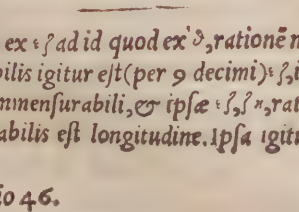 ex εζ ad id quod ex ϑ, rationē n
bilis igitur eſt (per 9 decimi) εζ, i
mmenſurabili, & ipſæ εζ, ζκ, rat
abilis eſt longitudine. Ipſa igitu
io 46.